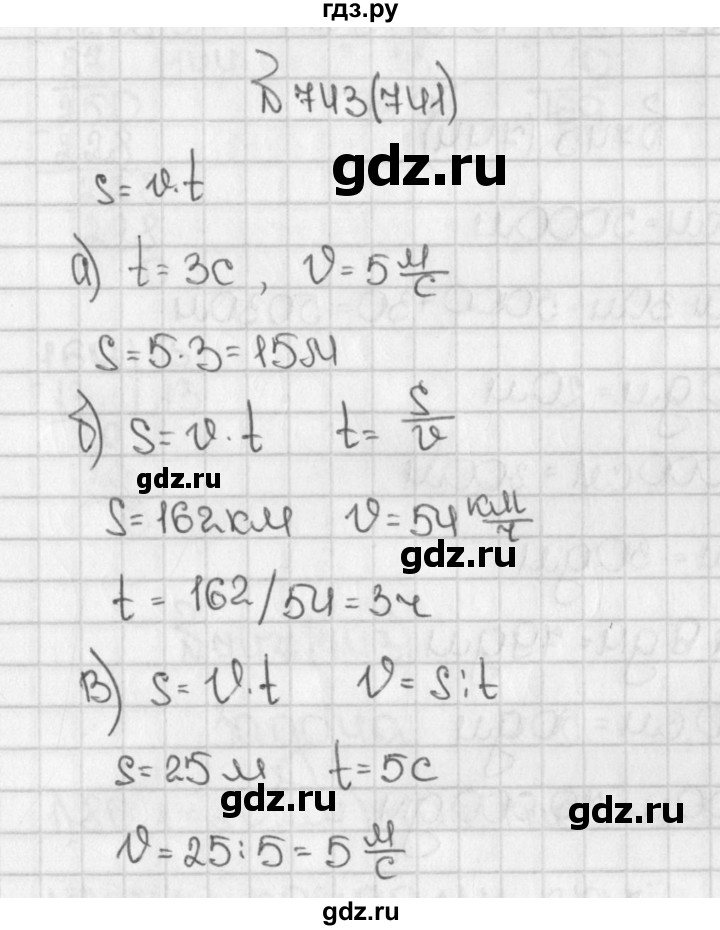 гдз.ру
№ 743(741)
gdz.ru
s = v · t
а) t = 3с, v = 5 м/с
s = 5 · 3 = 15м
б) s = v · t t = s/v
gdz.ru
s = 162км v = 54 км/ч
gdz.ru
t = 162/54 = 3ч
в) s = v · t v = s : t
s = 25м t = 5с
gdz.ru
gdz.ru
v = 25 : 5 = 5 м/с
gdz.ru